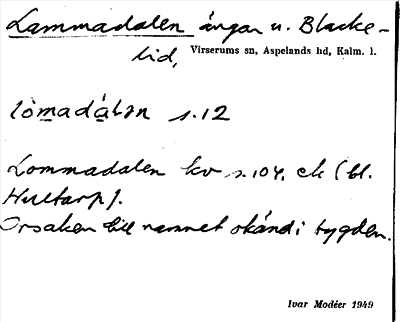 Lammadalen ängar u. Blacke-
lid, Virserums sn, Aspelands hd, Kalm. l.
lòmadálən s.12
Lommadalen kv s.104. ek (bl.
Hultarp).
Orsaken till namnet okänd i bygden.
Ivar Modéer 1949